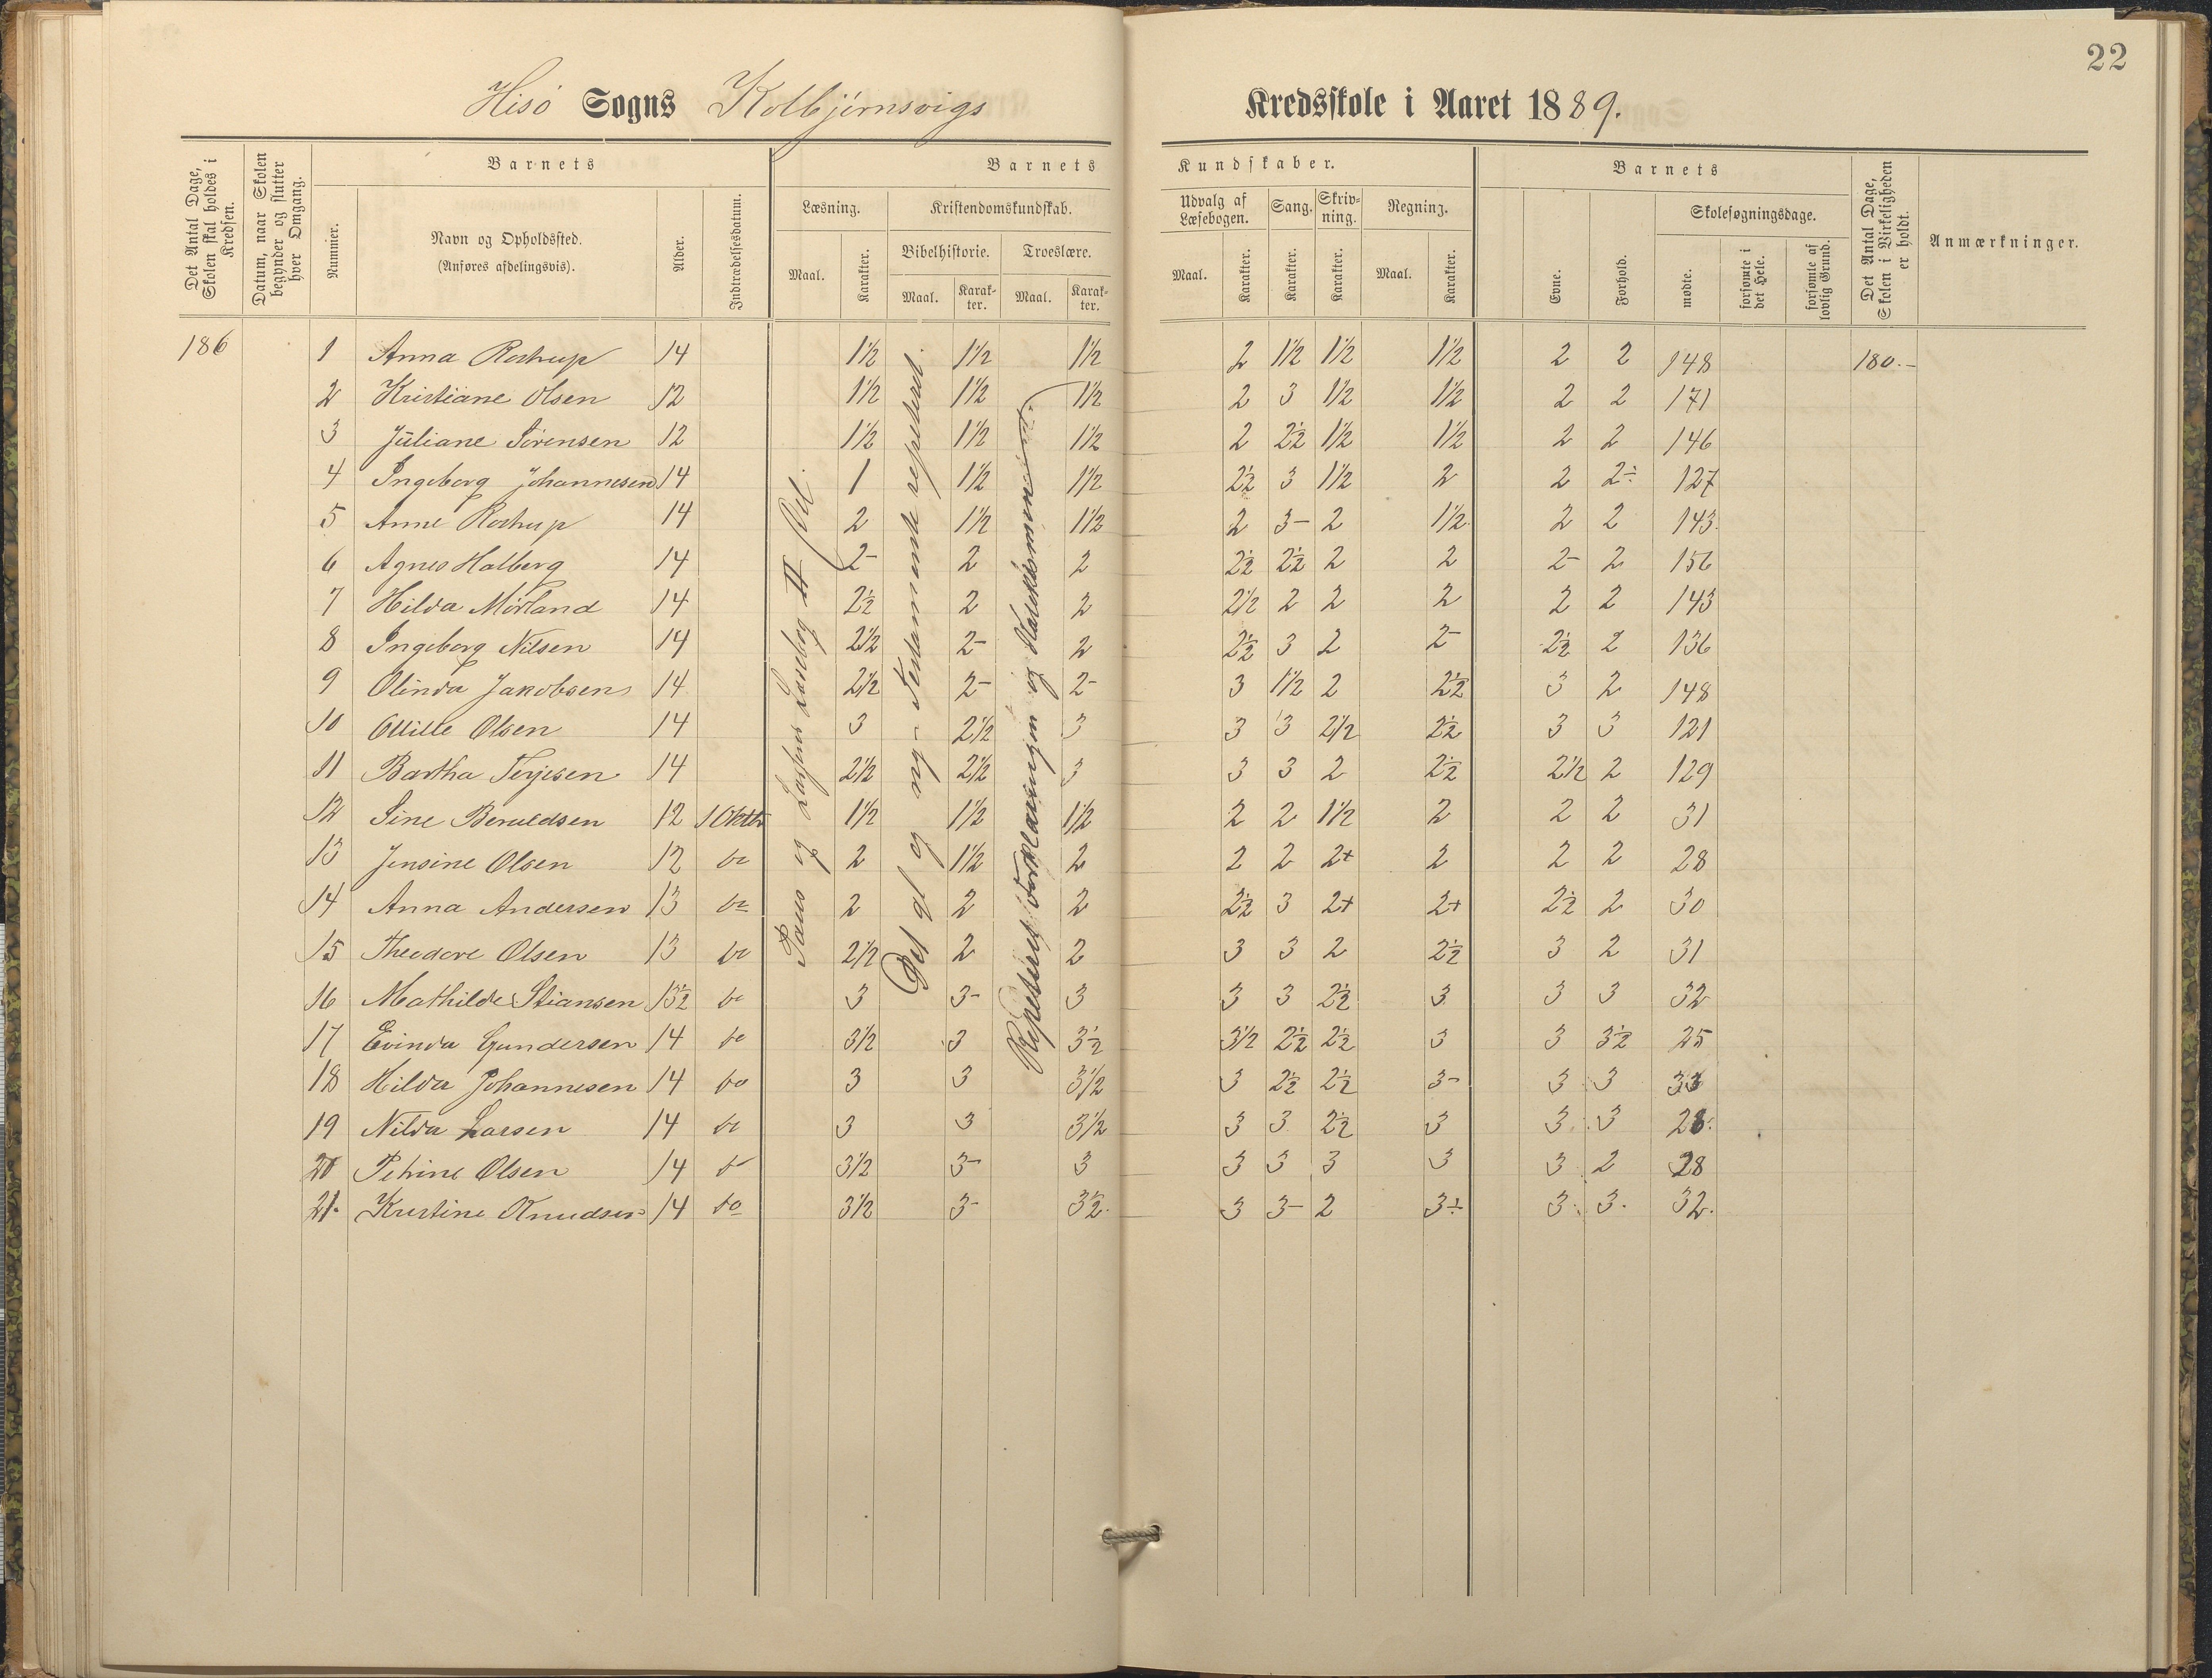 22
Hisö Sogns Kolbjörnsvigs Kredsskole i Aaret 1889.
Det Antal Dage, Skolen skal holdes i Kredsen.
Datum, naar Skolen begynder og slutter hver Omgang.
Barnets
Nummer.
Navn og Opholdssted.
(Anføres afdelingsvis).
Alder.
Indtrædelsesdatum.
Barnets Kundskaber.
Læsning.
Maal.
Karakter.
Kristendomskundskab.
Bibelhistorie.
Maal.
Karakter.
Troeslære.
Maal.
Karakter.
Udvalg af Læsebogen.
Maal.
Karakter.
Sang.
Karakter.
Skrivning.
Karakter.
Regning.
Maal.
Karakter.
Barnets
Evne.
Forhold.
Skolesøgningsdage.
mødte.
forsømte i det Hele.
forsømte af lovlig Grund.
Det Antal Dage, Skolen i Virkeligheden er holdt.
Anmærkninger.
186 1 Anna Rostrup 14 1½ 1½ 1½ 2 1½ 1½ 1½ 2 2 148 180.-
2 Kristiane Olsen 12 1½ 1½ 1½ 2 3 1½ 1½ 2 2 171
3 Juliane Sörensen 12 1½ 1½ 1½ 2 2½ 1½ 1½ 2 2 146
4 Ingeborg Johannesen 14 1 1½ 1½ 2½ 3 1½ 2 2 2÷ 127
5 Anne Rostrup 14 2 1½ 1½ 2 3- 2 1½ 2 2 143
6 Agnes Halberg 14 2- 2 2 2½ 2½ 2 2 2- 2 156
7 Hilda Mörland 14 2½ 2 2 2½ 2 2 2 2 2 143
8 Ingeborg Nilsen 14 2½ 2- 2 2½ 3 2 2- 2½ 2 136
9 Olinda Jakobsen 14 2½ 2- 2- 3 1½ 2 2½ 3 2 148
10 Otilie Olsen 14 3 2½ 3 3 3 2½ 2½ 3 3 121
11 Bartha Terjesen 14 2½ 2½ 3 3 3 2 2½ 2½ 2 129
12 Sine Beruldsen 12 1 Oktbr 1½ 1½ 1½ 2 2 1½ 2 2 2 31
13 Jensine Olsen 12 do 2 1½ 2 2 2 2+ 2 2 2 28
14 Anna Andersen 13 do 2 2 2 2½ 3 2+ 2+ 2½ 2 30
15 Theodore Olsen 13 do 2½ 2 2 3 3 2 2½ 3 2 31
16 Mathilde Stiansen 13½ do 3 3- 3 3 3 2½ 3 3 3 32
17 Evinda Gundersen 14 do 3½ 3 3½ 3½ 2½ 2½ 3 3 3½ 25
18 Hilda Johannesen 14 do 3 3 3½ 3 2½ 2½ 3- 3 3 33
19 Nilda Larsen 14 do 3 3 3½ 3 3 2½ 3 3 3 28.
20 Petrine Olsen 14 do 3½ 3- 3 3 3 3 3 3 2 28
21. Kristine Knudsen 14 do 3½ 3- 3½. 3 3- 2 3÷ 3. 3. 32.
Paus og Lassens Læsebog II Del.
Det gl og nye Testamente repeteret.
Repeteret Forklaringen og Katekismen